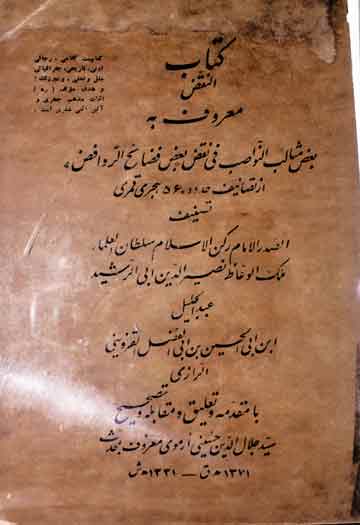 کتاب
النقض
معروف به
بعض مثالب النواصب فی نقض بعض فضائح الروافض
از تصانیف حدود ۵۶۰ هجری قمری
تصنیف
الصدر الامام رکن الاسلام سلطان العلماء
ملک الوعاظ نصیر الدین ابی الرشید
عبدالجلیل
ابن ابی الحسین بن ابی الفضل القزوینی
الرازی
با مقدمه و تعلیق و مقابله و تصحیح
سید جلال الدین حسینی ارموی معروف بمحدث
۱۳۷۱ ه ق — ۱۳۳۱ ه ش
کتابیست کلامی ، رجالی
ادبی، تاریخی، جغرافیائی
و هدف مؤلف (ره)
اثبات مذهب جعفری و